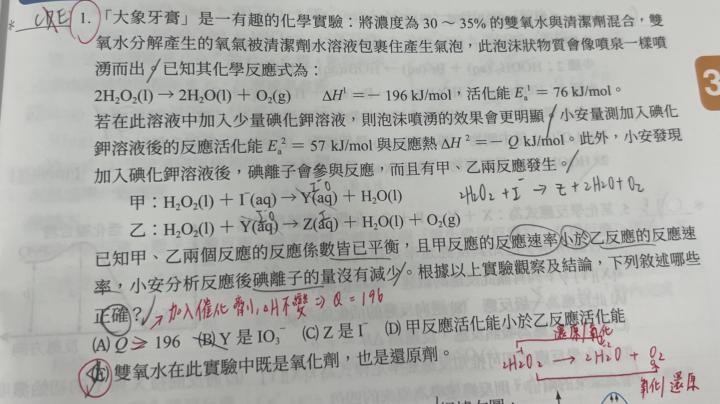 * CDE 1.「大象牙膏」是一有趣的化學實驗：將濃度為 30 ~ 35% 的雙氧水與清潔劑混合，雙
氧水分解產生的氧氣被清潔劑水溶液包裹住產生氣泡，此泡沫狀物質會像噴泉一樣噴
湧而出。已知其化學反應式為：
2H₂O₂(l) → 2H₂O(l) + O₂(g) ΔH¹ = − 196 kJ/mol，活化能 Eₐ¹ = 76 kJ/mol。
若在此溶液中加入少量碘化鉀溶液，則泡沫噴湧的效果會更明顯。小安量測加入碘化
鉀溶液後的反應活化能 Eₐ² = 57 kJ/mol 與反應熱 ΔH² = − Q kJ/mol。此外，小安發現
加入碘化鉀溶液後，碘離子會參與反應，而且有甲、乙兩反應發生。
甲：H₂O₂(l) + I⁻(aq) → Y(aq) + H₂O(l)
I⁻O
2H₂O₂ + I⁻ → Z + 2H₂O + O₂
乙：H₂O₂(l) + Y(aq) → Z(aq) + H₂O(l) + O₂(g)
I⁻O
I⁻
已知甲、乙兩個反應的反應係數皆已平衡，且甲反應的反應速率小於乙反應的反應速
率，小安分析反應後碘離子的量沒有減少。根據以上實驗觀察及結論，下列敘述哪些
正確？
加入催化劑，ΔH不變 ⇒ Q = 196
(A) Q ≥ 196 (B) Y 是 IO₃⁻ (C) Z 是 I⁻ (D) 甲反應活化能小於乙反應活化能
(E) 雙氧水在此實驗中既是氧化劑，也是還原劑。
還原/氧化
2H₂O₂ → 2H₂O + O₂
氧化/還原
3